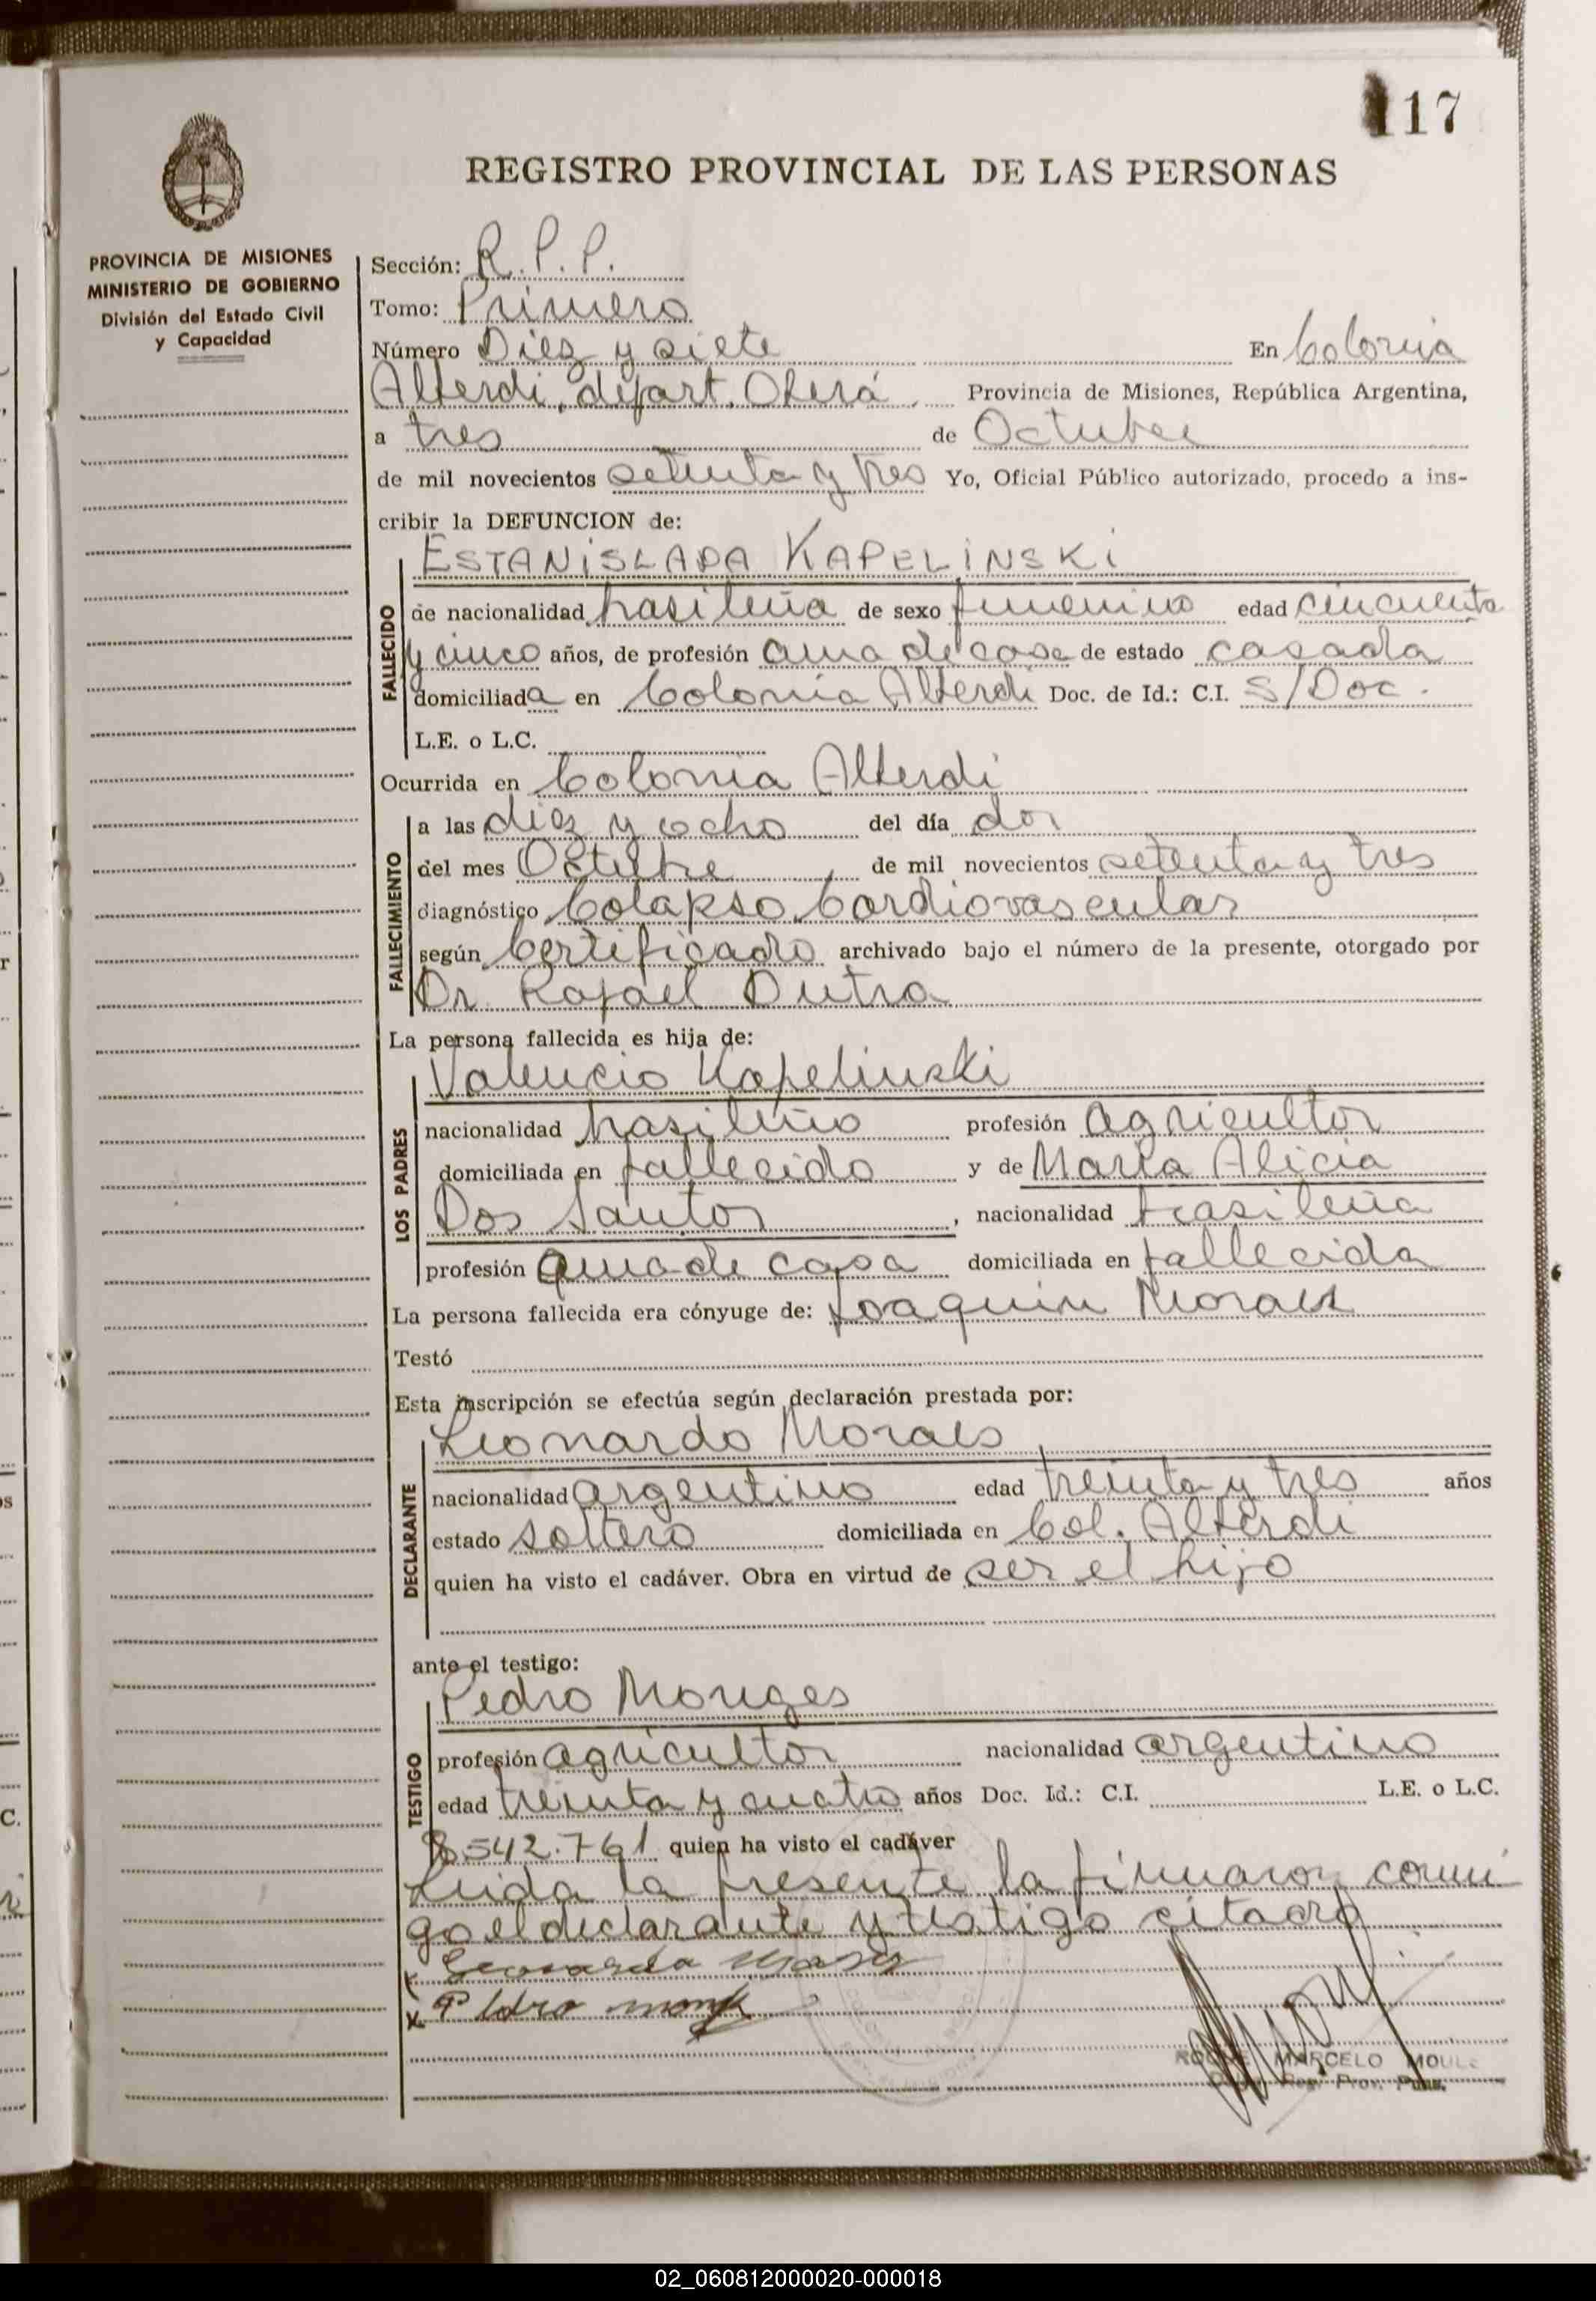 17
REGISTRO PROVINCIAL DE LAS PERSONAS
PROVINCIA DE MISIONES
MINISTERIO DE GOBIERNO
División del Estado Civil
y Capacidad
Sección: R.P.P.
Tomo: Primero
Número Diez y siete En Colonia
Alberdi, depart. Oberá Provincia de Misiones, República Argentina,
a tres de Octubre
de mil novecientos setenta y tres Yo, Oficial Público autorizado, procedo a ins-
cribir la DEFUNCION de:
ESTANISLADA KAPELINSKI
FALLECIDO
de nacionalidad brasileña de sexo femenino edad cincuenta
y cinco años, de profesión ama de casa de estado casada
domiciliada en Colonia Alberdi Doc. de Id.: C.I. S/Doc.
L.E. o L.C.
Ocurrida en Colonia Alberdi
FALLECIMIENTO
a las diez y ocho del día dos
del mes Octubre de mil novecientos setenta y tres
diagnóstico Colapso Cardiovascular
según Certificado archivado bajo el número de la presente, otorgado por
Dr. Rafael Dutra
La persona fallecida es hija de:
LOS PADRES
Valencio Kapelinski
nacionalidad brasileño profesión agricultor
domiciliada en fallecido y de María Alicia
Dos Santos, nacionalidad brasileña
profesión ama de casa domiciliada en fallecida
La persona fallecida era cónyuge de: Joaquin Moraes
Testó
Esta inscripción se efectúa según declaración prestada por:
DECLARANTE
Leonardo Moraes
nacionalidad argentino edad treinta y tres años
estado soltero domiciliada en Col. Alberdi
quien ha visto el cadáver. Obra en virtud de ser el hijo
ante el testigo:
TESTIGO
Pedro Monges
profesión agricultor nacionalidad argentino
edad treinta y cuatro años Doc. Id.: C.I. L.E. o L.C.
8.542.761 quien ha visto el cadáver
Leida la presente la firmaron conmi
go el declarante y testigo citado
x Pedro
MARCELO
Reg. Prov. Pers.
02_060812000020-000018